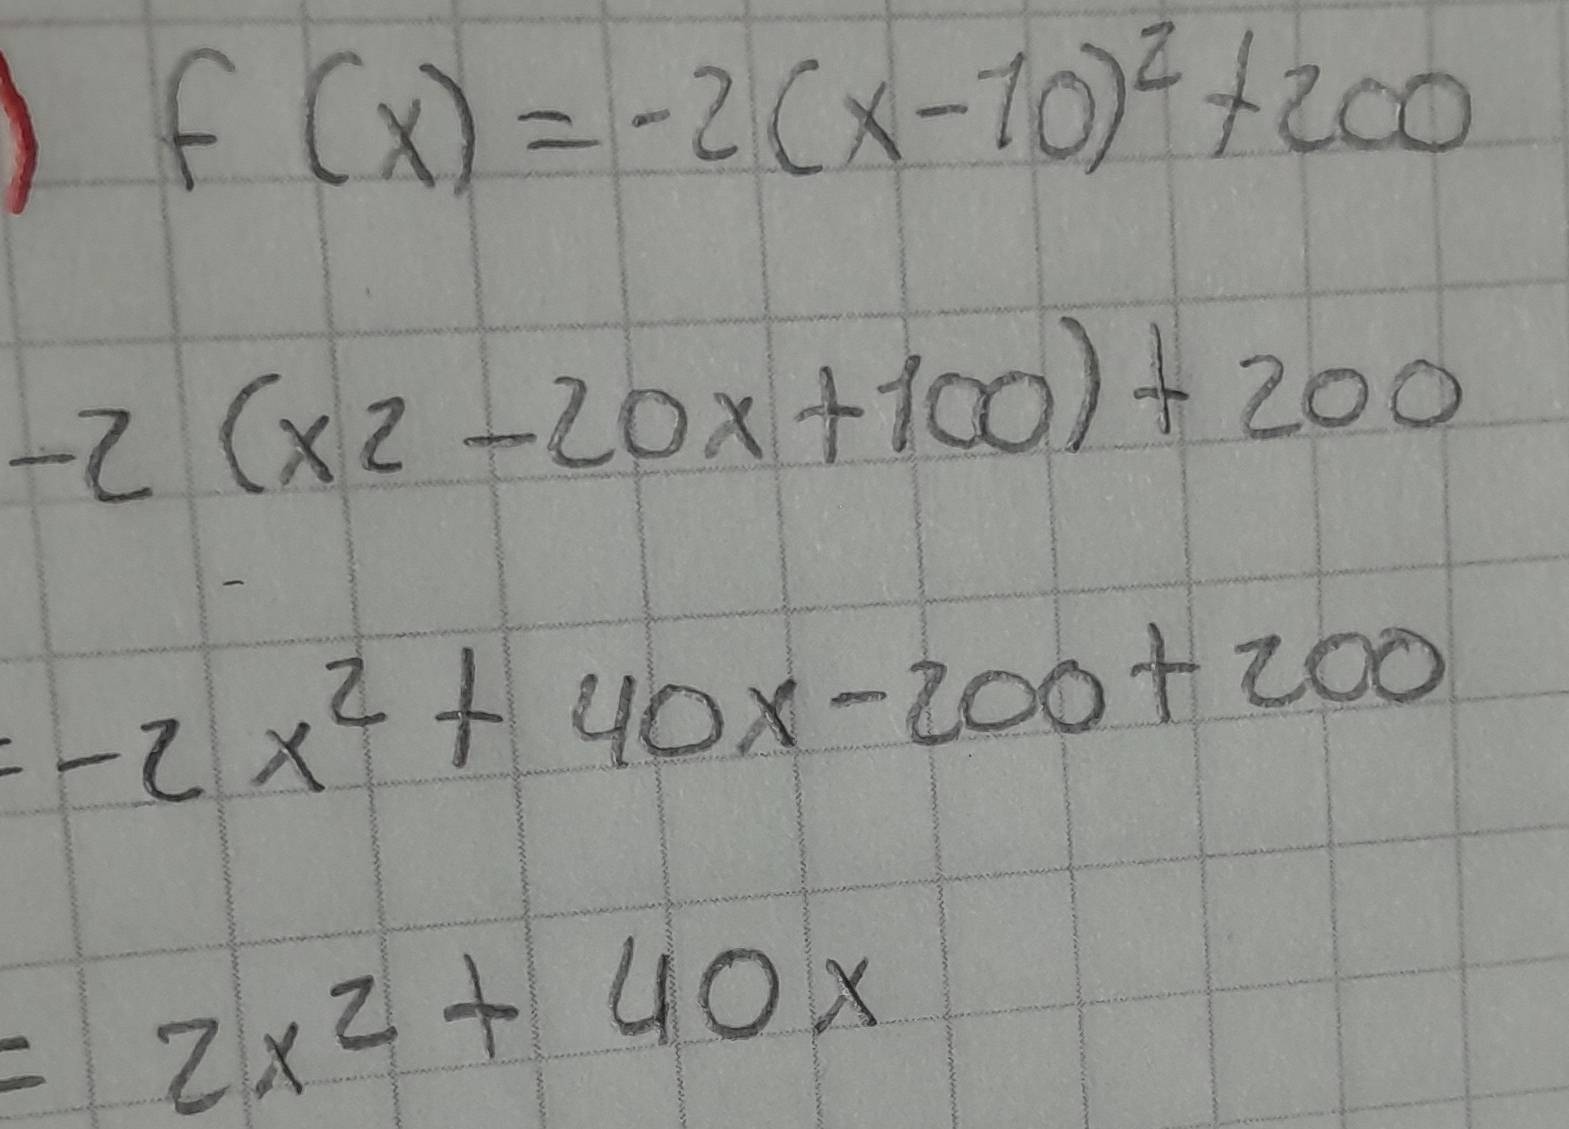 ) f(x) = -2(x-10)² + 200
-2 (x2 - 20x + 100) + 200
= -2x² + 40x - 200 + 200
= 2x² + 40x